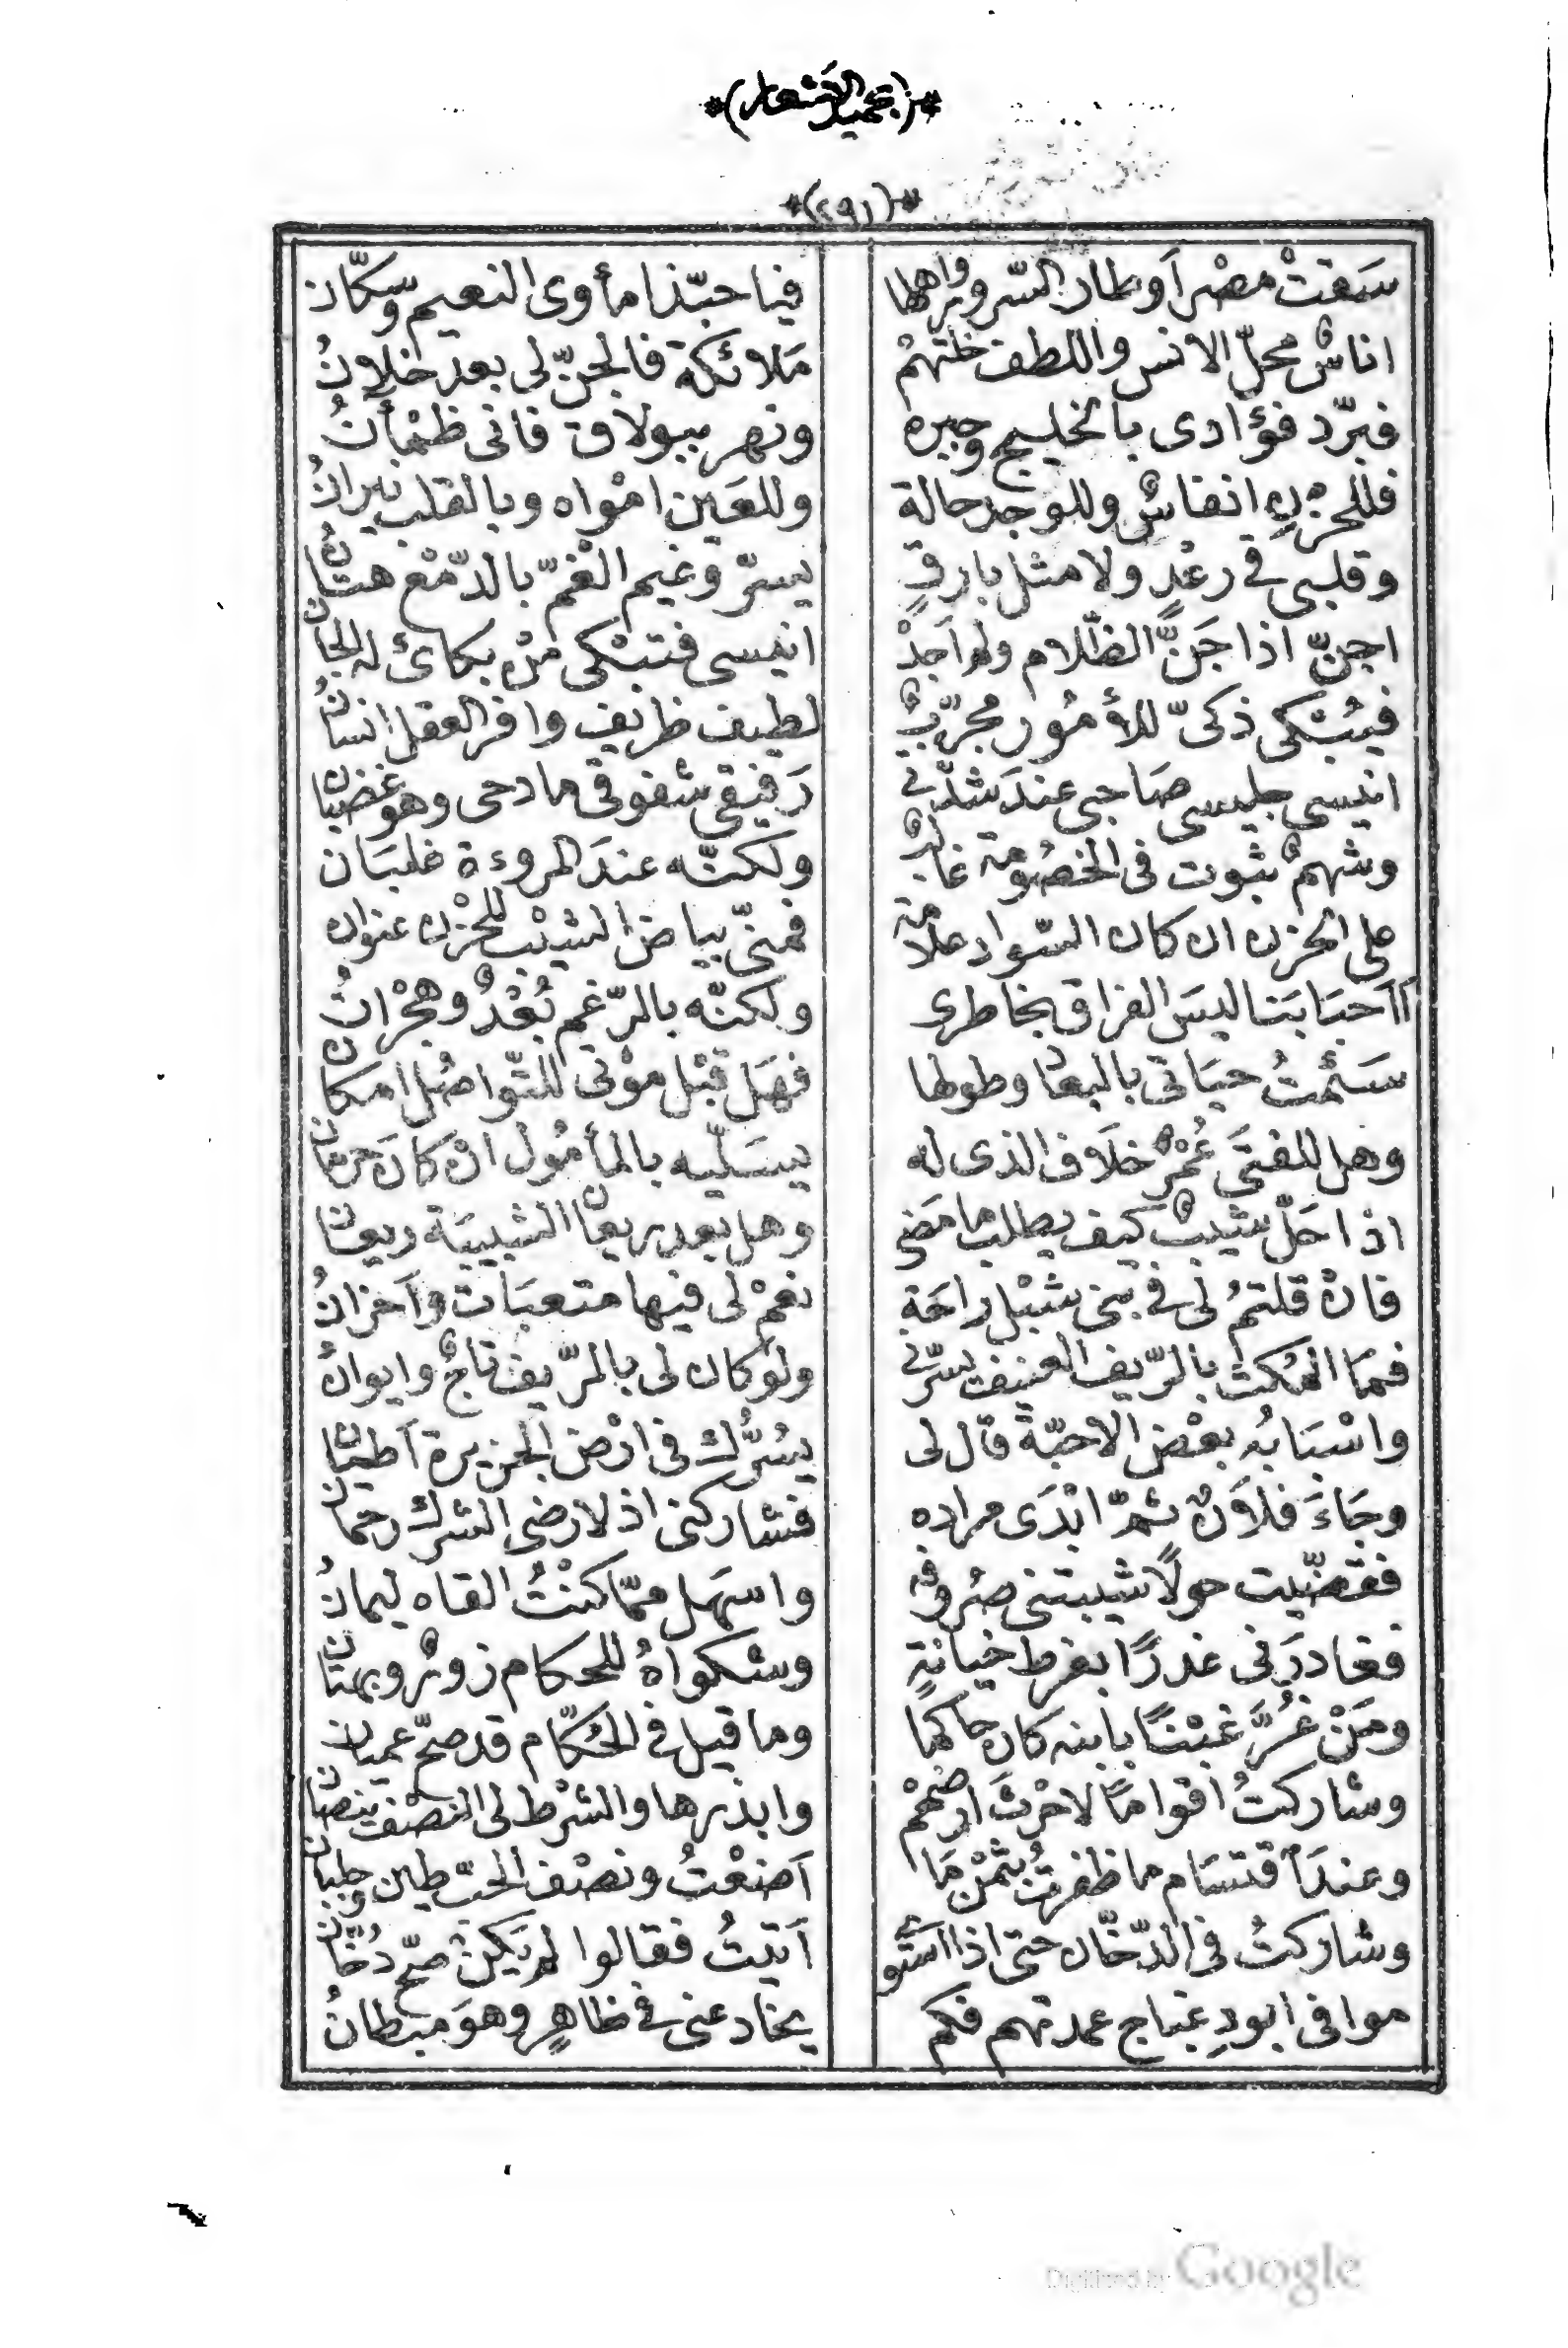 (جميل الاشعار)
(٤٩١)
سَقتْ مصْر أوطار السّرور واهلها فيا حبّذا مأوى النعيم وسكّان
اناسٌ محلّ الانس واللطف خلتهمْ مَلائكة فالجنّ لى بعد خلانُ
فبرّد فؤادى بالخليج وجيره ونهر ببولاق فانى ظمْأنُ
فللحزنِ انفاسٌ وللوجد حالة وللعَين امْواه وبالقلب نيرانُ
وقلبى فى رعْدٍ ولا مثل بارقٍ يسرّ وغيم الغمّ بالدّمْع هتّانُ
اجنّ اذا جَنَّ الظّلام ولم اَجدْ انيسى فتبْكى مْن بكائ له الجان
فيُبْكى ذكىّ للأمُور مجرّبٌ لطيف ظريف وافر العقل انسانُ
انيسى جليسى صَاحبى عندَ شدّتى رَفيقى شفوقى مادحى وهو غضبان
وشهمٌ ثبوت فى الخصُومة غالبٌ ولكنّه عندَ المروءة غلبَان
على الحزن ان كان السّواد علامة فمنّى بياض الشيْب للحْزن عنوان
أاحبَابَنا ليسَ الفراق بخاطرى ولكنّه بالرّغم بُعْدٌ وهجْرانُ
سَئمْتُ حيَاتى بالبعاد وطولها فهَل قبْل موْتى للتّواصُل امكان
وهل للفتَى عُمْرٌ خلَاف الذى له يسَلّيه بالمأمُول انْ كانَ حرمان
اذا حَلّ شيْبٌ كيف يطلب ما مَضى وهل بعد ريعان الشبيبَة ريعان
فانْ قلتمُ لى فى بنى شبْل راحَة نعمْ لى فيها متعبَات وأحزانُ
فمَا المكث بالرّيف العنيف يسرّنى ولو كان لى بالرّيف تاجٌ وايوان
واسْبَابُه بعْض الاحبّة قال لى يسُرّك فى ارْض الجزيرة أطيان
وجَاءَ فلاَنٌ ثمّ ابْدَى مراده فشاركنى اذ لارضى الشرك رحمان
فقضّيت حولًا شيبتنى صُروفه واسهَل ممّا كنْتُ القاه ليمانُ
فغادرَنى غدرًا بفرط خيانةٍ وشكواهُ للحكام زورٌ وبهتان
ومَنْ غُرَّ غبْنًا بابنه كان حاكما وما قيل فى الحُكّام قد صحّ عميان
وشاركتُ اقوامًا لاحْرثَ ارضهمْ وابذرها والشرْط لى النصْف ينصَان
وعندَ اقتسَام ما ظفرتُ بثمْن مَا أضعْتُ ونصْف الحَبّ طين وجلبان
وشاركتُ فى الدّخّان حتى اذا استَوى أتيتُ فقالوا لم يَكنْ صحّ دُخّان
موافى ابودِعناج عمدتهم فكم يخادعنى فى ظاهرٍ وهوَ مبطانُ
Digitized by Google